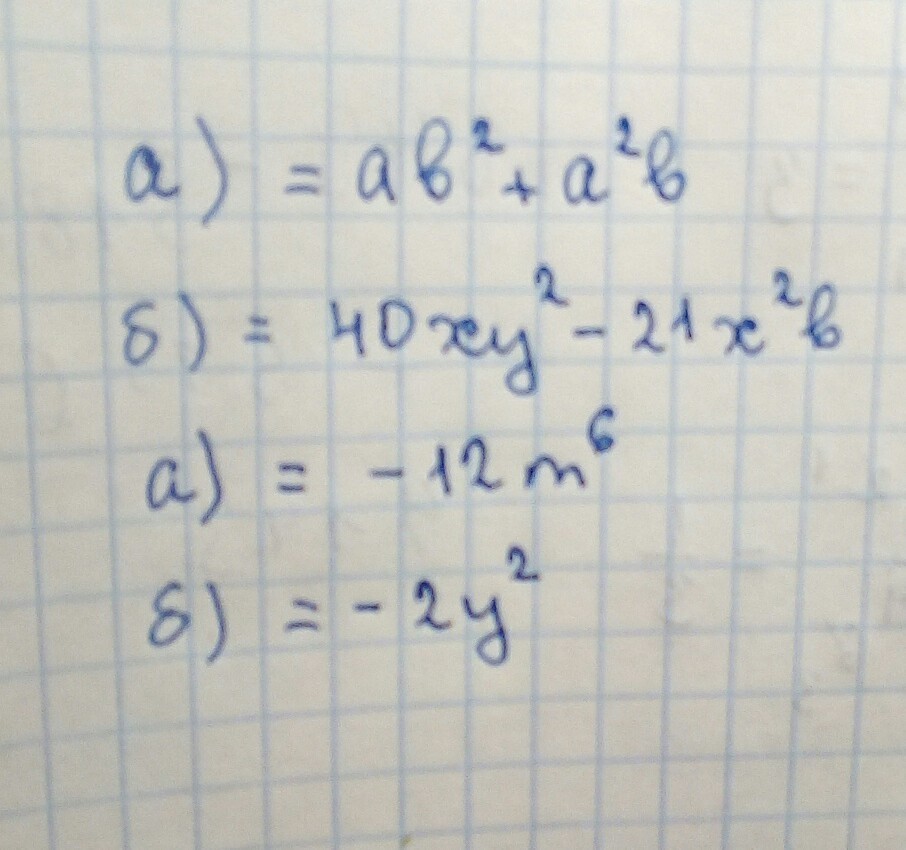 а) = ab² + a²b
б) = 40xy² - 21x²b
а) = -12m⁶
б) = -2y²